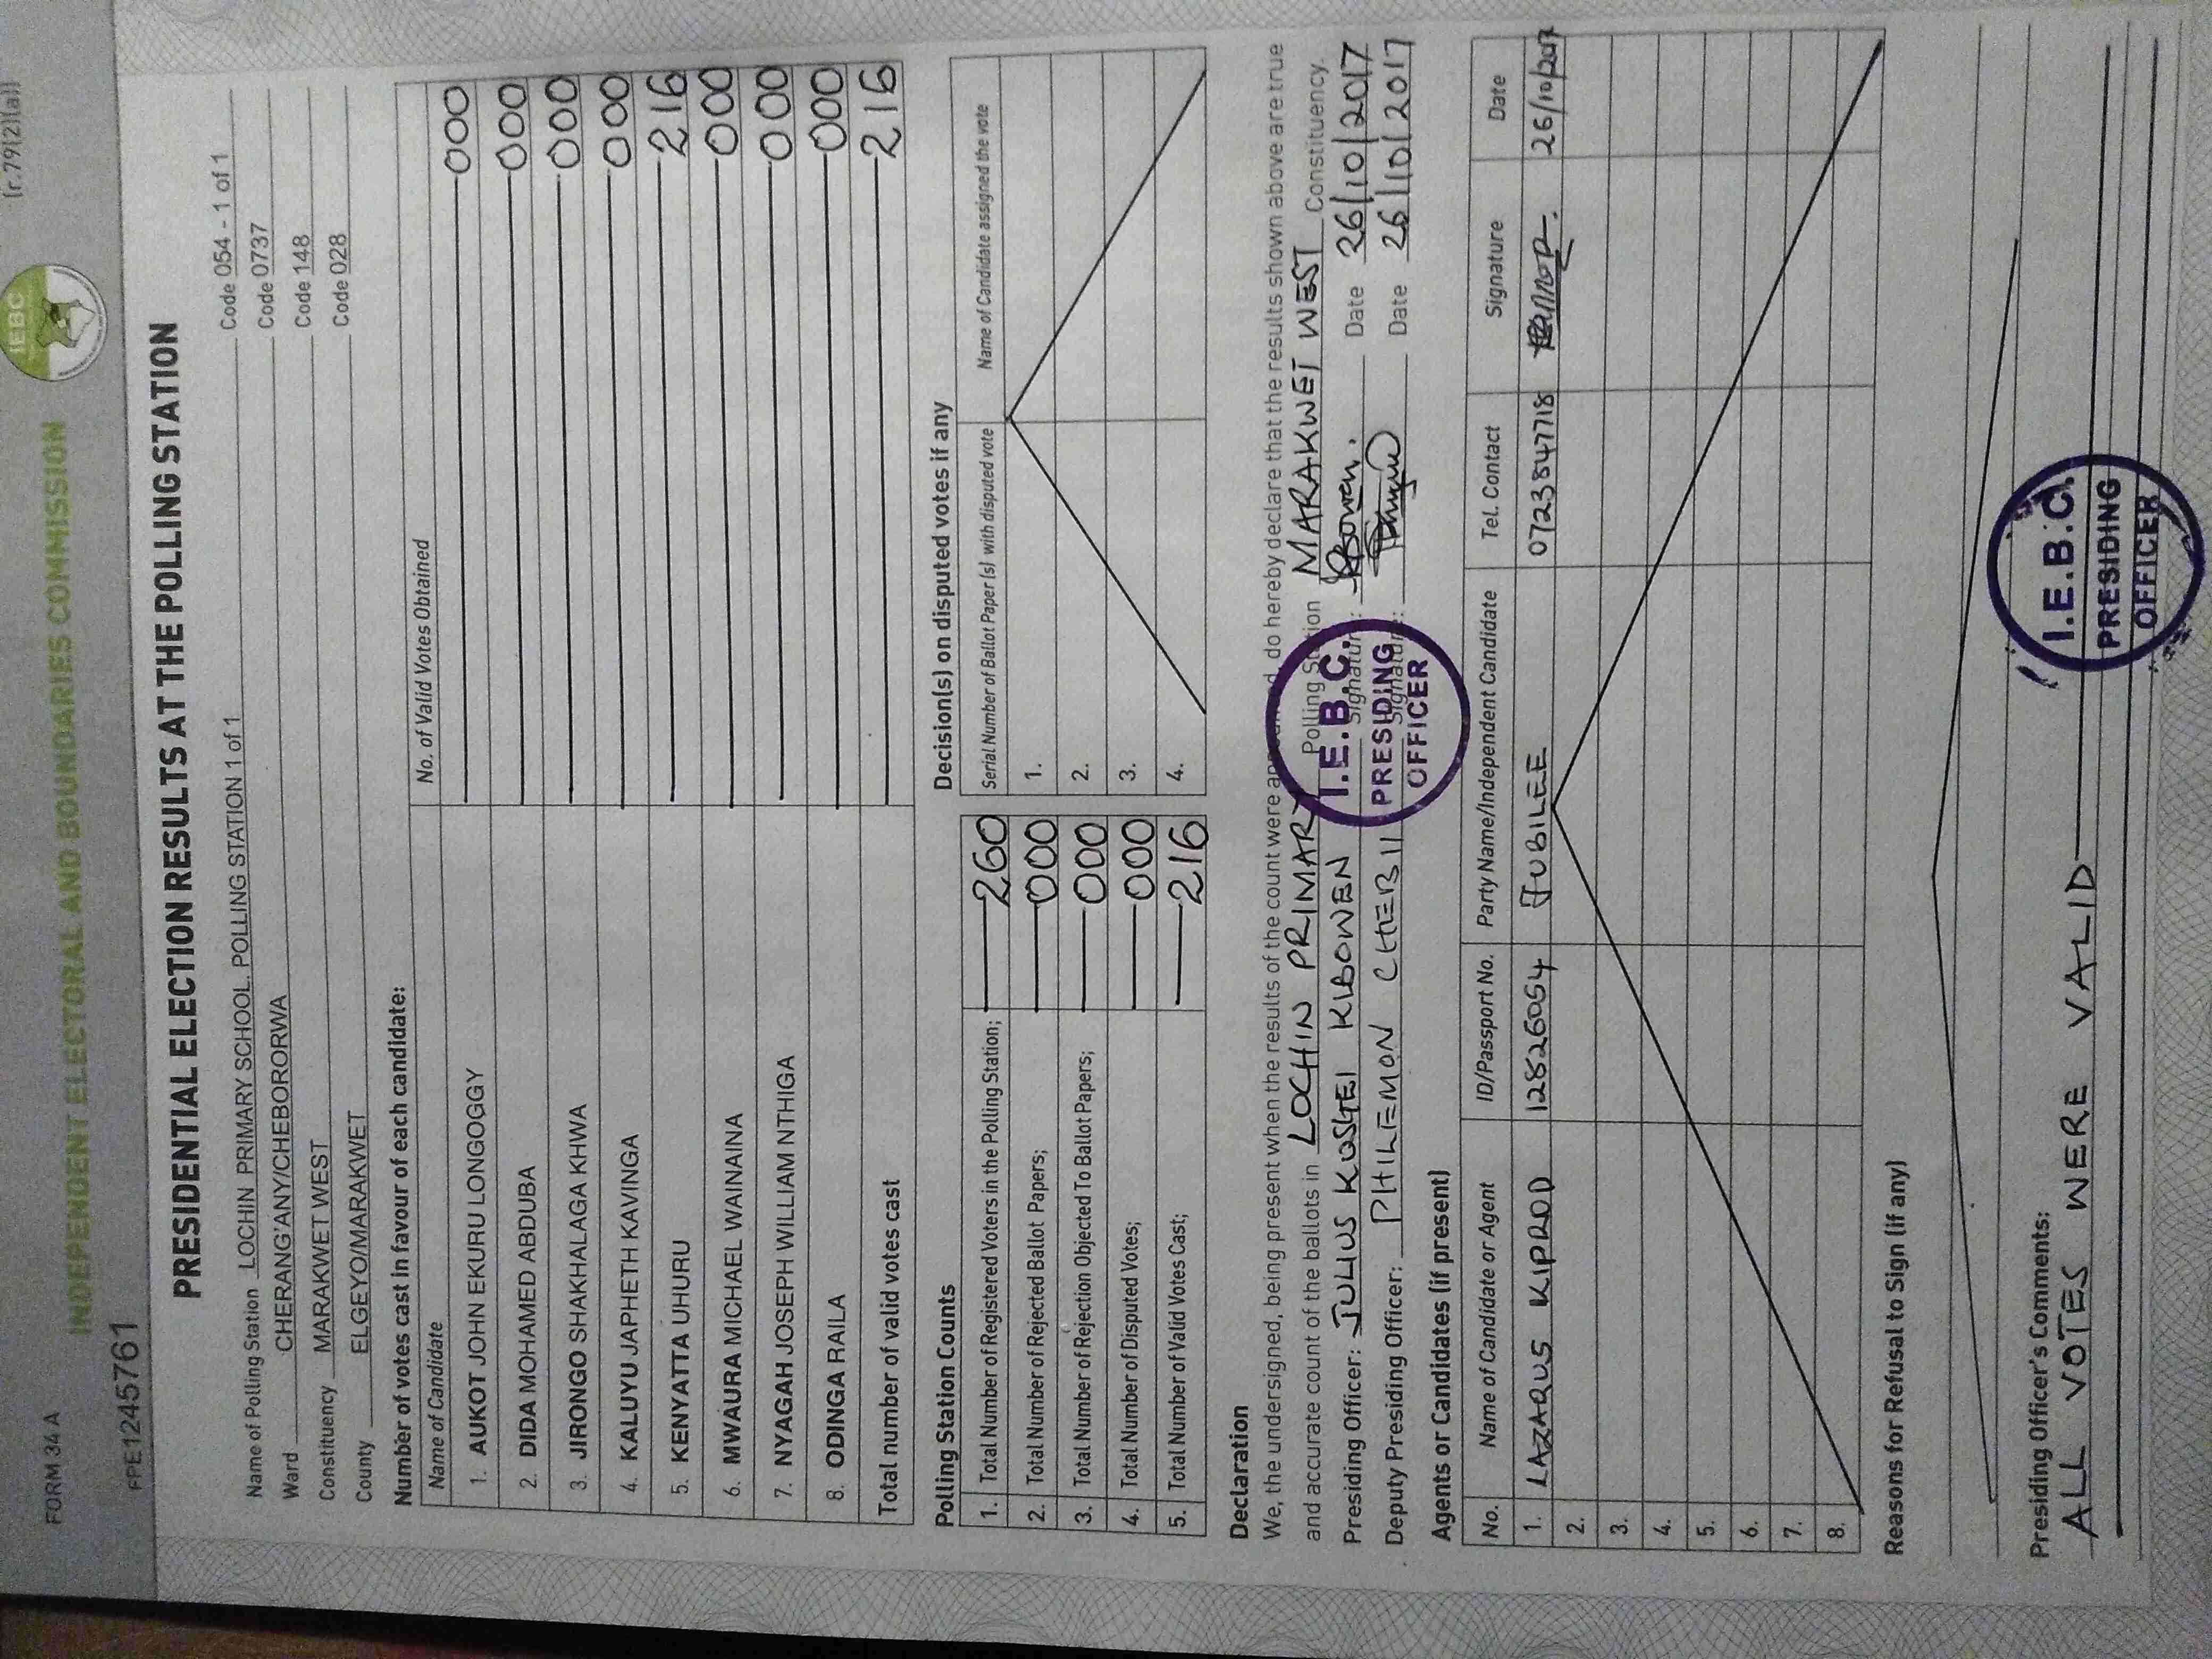 FORM 34 A
(r.79(2)(a))
IEBC
INDEPENDENT ELECTORAL AND BOUNDARIES COMMISSION
FPE1245761
PRESIDENTIAL ELECTION RESULTS AT THE POLLING STATION
Name of Polling Station LOCHIN PRIMARY SCHOOL. POLLING STATION 1 of 1 Code 054 - 1 of 1
Ward CHERANG'ANY/CHEBORORWA Code 0737
Constituency MARAKWET WEST Code 148
County ELGEYO/MARAKWET Code 028
Number of votes cast in favour of each candidate:
Name of Candidate No. of Valid Votes Obtained
1. AUKOT JOHN EKURU LONGOGGY 000
2. DIDA MOHAMED ABDUBA 000
3. JIRONGO SHAKHALAGA KHWA 000
4. KALUYU JAPHETH KAVINGA 000
5. KENYATTA UHURU 216
6. MWAURA MICHAEL WAINAINA 000
7. NYAGAH JOSEPH WILLIAM NTHIGA 000
8. ODINGA RAILA 000
Total number of valid votes cast 216
Polling Station Counts
1. Total Number of Registered Voters in the Polling Station; 260
2. Total Number of Rejected Ballot Papers; 000
3. Total Number of Rejection Objected To Ballot Papers; 000
4. Total Number of Disputed Votes; 000
5. Total Number of Valid Votes Cast; 216
Decision(s) on disputed votes if any
Serial Number of Ballot Paper (s) with disputed vote Name of Candidate assigned the vote
1.
2.
3.
4.
Declaration
We, the undersigned, being present when the results of the count were announced, do hereby declare that the results shown above are true
and accurate count of the ballots in LOCHIN PRIMARY Polling Station MARAKWET WEST Constituency.
Presiding Officer: JULIUS KOSGEI KIBOWEN Signature: Date 26/10/2017
Deputy Presiding Officer: PHILEMON CHEBII Signature: Date 26/10/2017
I.E.B.C.
PRESIDING
OFFICER
Agents or Candidates (if present)
No. Name of Candidate or Agent ID/Passport No. Party Name/Independent Candidate Tel. Contact Signature Date
1. LAZARUS KIPROP 12826054 JUBILEE 0723847718 26/10/2017
2.
3.
4.
5.
6.
7.
8.
Reasons for Refusal to Sign (if any)
Presiding Officer's Comments:
ALL VOTES WERE VALID
I.E.B.C.
PRESIDING
OFFICER